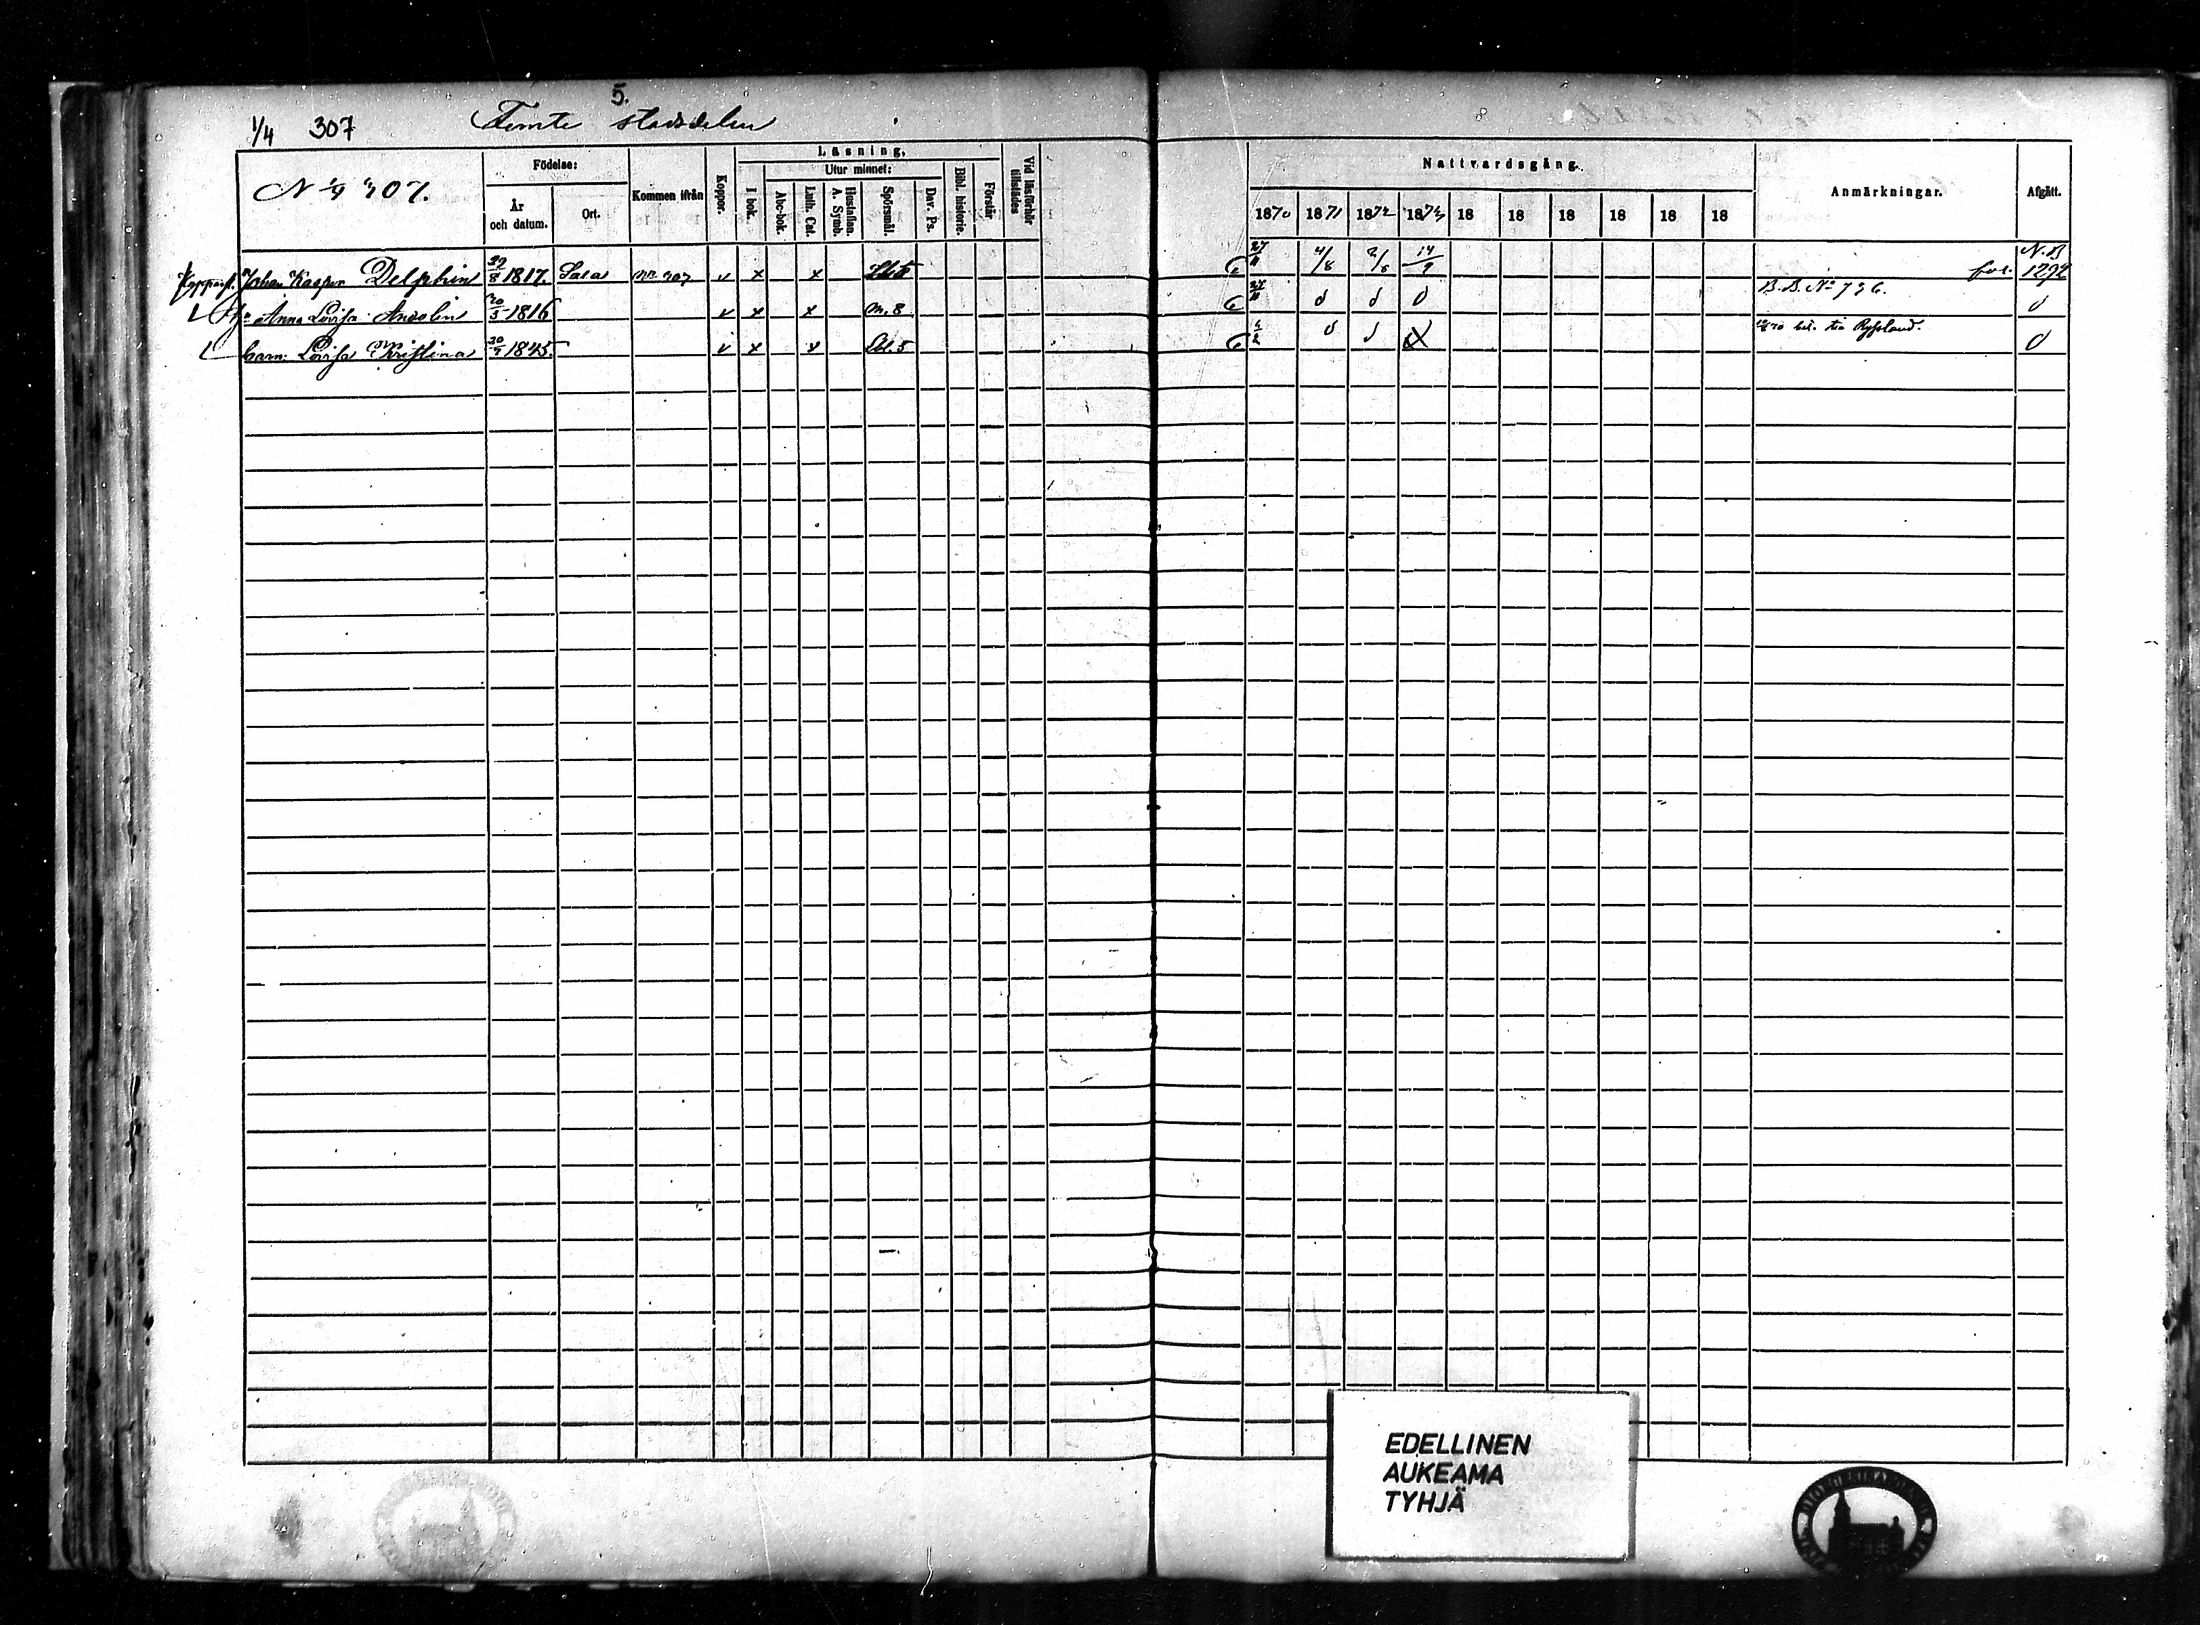 5.
1/4 307 Femte stadsdelen
N 1/4 307.
Födelse:
År och datum.
Ort.
Kommen ifrån
Koppor.
Läsning.
I bok.
Utur minnet:
Abc-bok.
Luth. Cat.
Hustaflan.
A. Symb.
Spörsmål.
Dav. Ps.
Bibl. historie.
Förstår
Vid läsförhör tillstädes
Nattvardsgång.
1870 1871 1872 1873 18 18 18 18 18 18
Anmärkningar.
Afgått.
Johan Kasper Delphin 29/8 1817. Sala 307 v x x 27/11 4/8 14/9 N.B. 1292
Anna Lovisa Andelin 20/5 1816 v x x m. 8 27/11 B.B. No 736.
barn: Lovisa Kristina 20/7 1845. v x x 5 bet. till Ryssland.
EDELLINEN
AUKEAMA
TYHJÄ